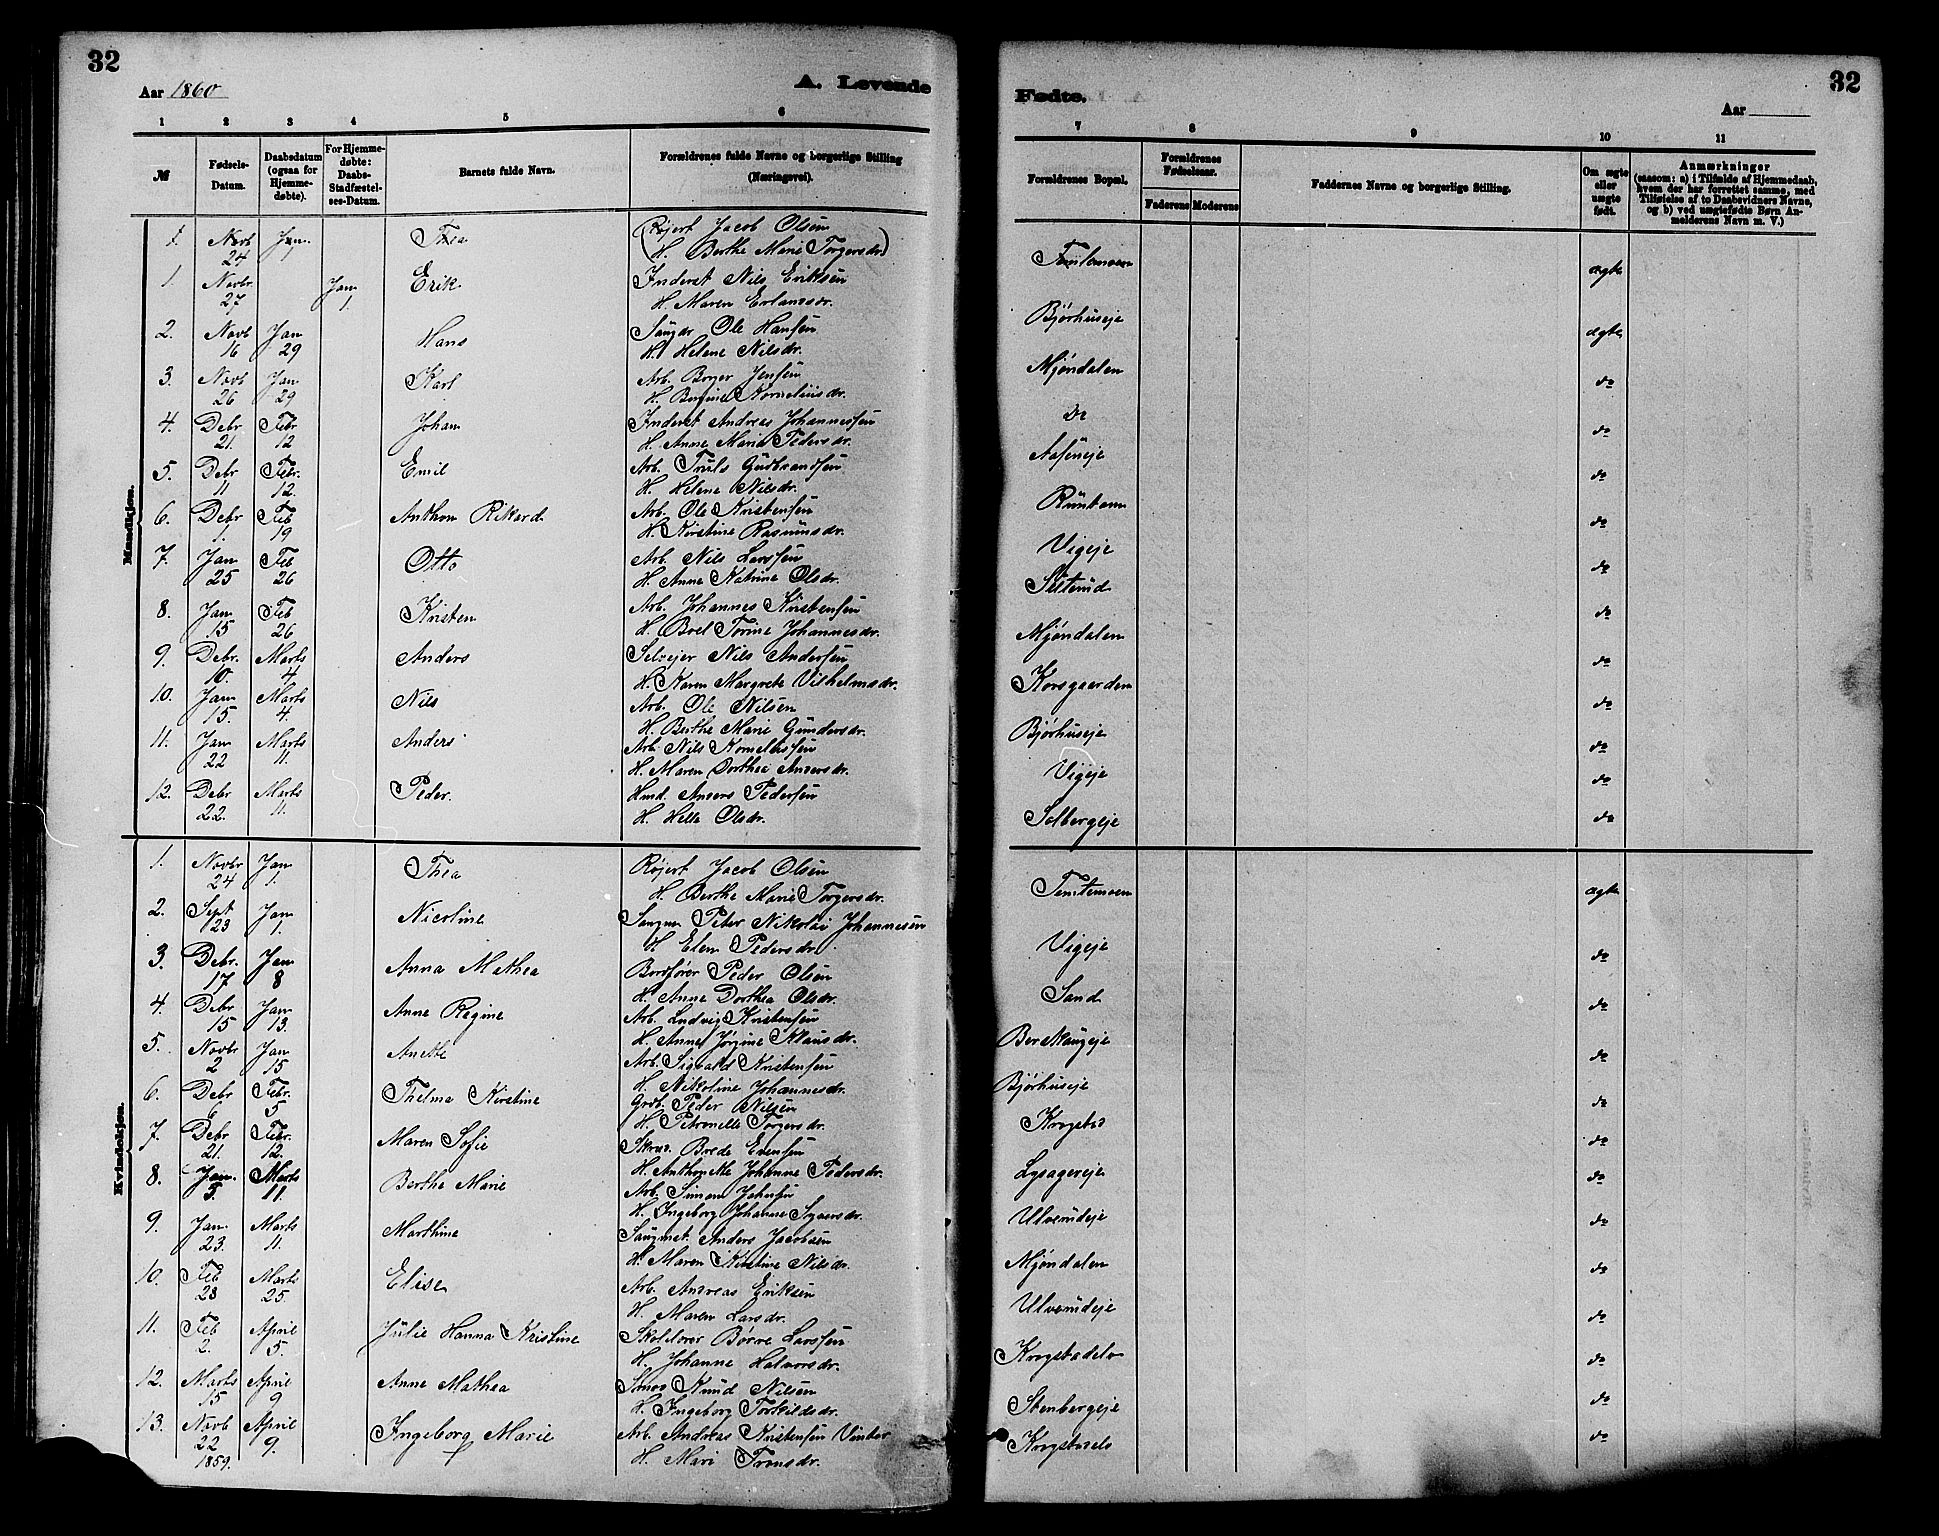 32
Aar 1860
A. Levende
1 2 3 4 5 6
№
Fødsels-Datum.
Daabsdatum (ogsaa for Hjemme-døbte).
For Hjemme-døbte: Daabs-Stadfæstel-ses-Datum.
Barnets fulde Navn.
Forældrenes fulde Navne og borgerlige Stilling (Næringsvei).
Mandkjøn.
1. Novb 24 Jan. 1 Thea (Røjert Jacob Olsen
H. Berthe Marie Torgersdr)
1. Novbr. 27 Jan 1. Erik Inderst Nils Eriksen
H. Maren Erlansdr.
2. Novb 16 Jan 29 Hans Ole Hansen
H. Helene Nilsdr.
3. Novb 26 Jan 29 Karl Arb. Borger Jensen
H. Bergine Kornelius dr.
4. Debr 21. Febr 12 Johan Inderst Andreas Johannessen
H. Anne Maria Pedersdr.
5. Debr 11 Febr. 12. Emil Arb. Truls Gudbrandsen
H. Helene Nilsdr.
6. Debr 1. Feb 19 Anthon Rikard Arb. Ole Kristensen
H. Kirstine Rasmusdr.
7. Jan 25 Feb 26 Otto Arb. Nils Larssen
H. Anne Katrine Olsdr.
8. Jan 15 Feb 26 Kristen Arb. Johannes Kristensen
H. Boel Torine Johannesdr.
9. Debr. 10. Marts 4. Anders Selvejer Nils Andersen
H. Karen Margrete Vilhelmsdr.
10. Jan 15. Marts 4. Nils Arb. Ole Nilsen
H. Berthe Marie Gundersdr.
11. Jan 22 Marts 11. Anders Arb. Nils Kornelissen
H. Maren Dorthea Andersdr.
12. Debr 22. Marts 11. Peder. Hmd. Anders Pedersen
H. Helle Olsdr.
Kvindekjøn.
1. Novbr 24 Jan 1. Thea Røjert Jacob Olsen
H. Berthe Marie Torgersdr.
2. Sept 23 Jan 1. Nicoline Peter Nikolai Johannesen
H. Elen Pedersdr.
3. Debr. 17 Jan 8 Anna Mathea Bordfører Peder Olsen
H. Anne Dorthea Olsdr.
4. Debr 15 Jan 13. Anne Regine Arb. Ludvig Kristensen
H. Anne Jørgine Klausdr.
5. Novbr 2 Jan 15 Anette Arb. Sigvald Kristensen
H. Nikoline Johannesdr.
6. Debr 6 Febr. 5 Thelma Kirstine Grdb. Peder Nilsen
H. Petronelle Torgersdr.
7. Debr 21. Febr. 12. Maren Sofie Skræd. Brede Evensen
H. Anthonette Johanne Pedersdr.
8. Jan. 5. Marts 11. Berthe Marie Arb. Simon Jahnsen
H. Ingeborg Johanne Syversdr.
9. Jan 23. Marts 11. Marthine Saugmst. Anders Jacobsen
H. Maren Kirstine Nilsdr.
10. Feb 28 Marts 25. Elise Arb. Andreas Eriksen
H. Maren Larsdr.
11. Feb 2. April 5. Julie Hanna Kristine Skolelærer Børre Larssen
H. Johanne Halvorsdr.
12. Marts 15 April 9 Anne Mathea Knud Nilsen
H. Ingeborg Torkildsdr.
13. Novb 22 1859. April 9. Ingeborg Marie Arb. Andreas Kristensen Vinter
H. Mari Tronsdr.
32
Fødte.
Aar
7 8 9 10 11
Forældrenes Bopæl.
Forældrenes Fødselsaar.
Faderens Moderens
Faddernes Navne og borgerlige Stilling.
Om ægte eller uægte født.
Anmærkninger
(saasom: a) i Tilfælde af Hjemmedaab,
hvem der har forrettet samme, med
Tilføielse af to Daabsvidners Navne,
og b) ved uægtefødte Børn An-
melderens Navn m. V.)
ægte
Bjørhuseje ægte
Mjøndalen do
Do do
Aaseneje do
do
Vigeje do
do
Mjøndalen do
Korsgaarden do
Bjørhuseje do
Vigeje do
Solbergeje do
ægte
Vigeje do
Sand do
Berskaugeje do
Bjørhuseje do
Krogstad do
Lysagereje do
Ulverudeje do
Mjøndalen do
Ulverudeje do
Krogstadelv do
Stenbergeje do
Krogstadelv do